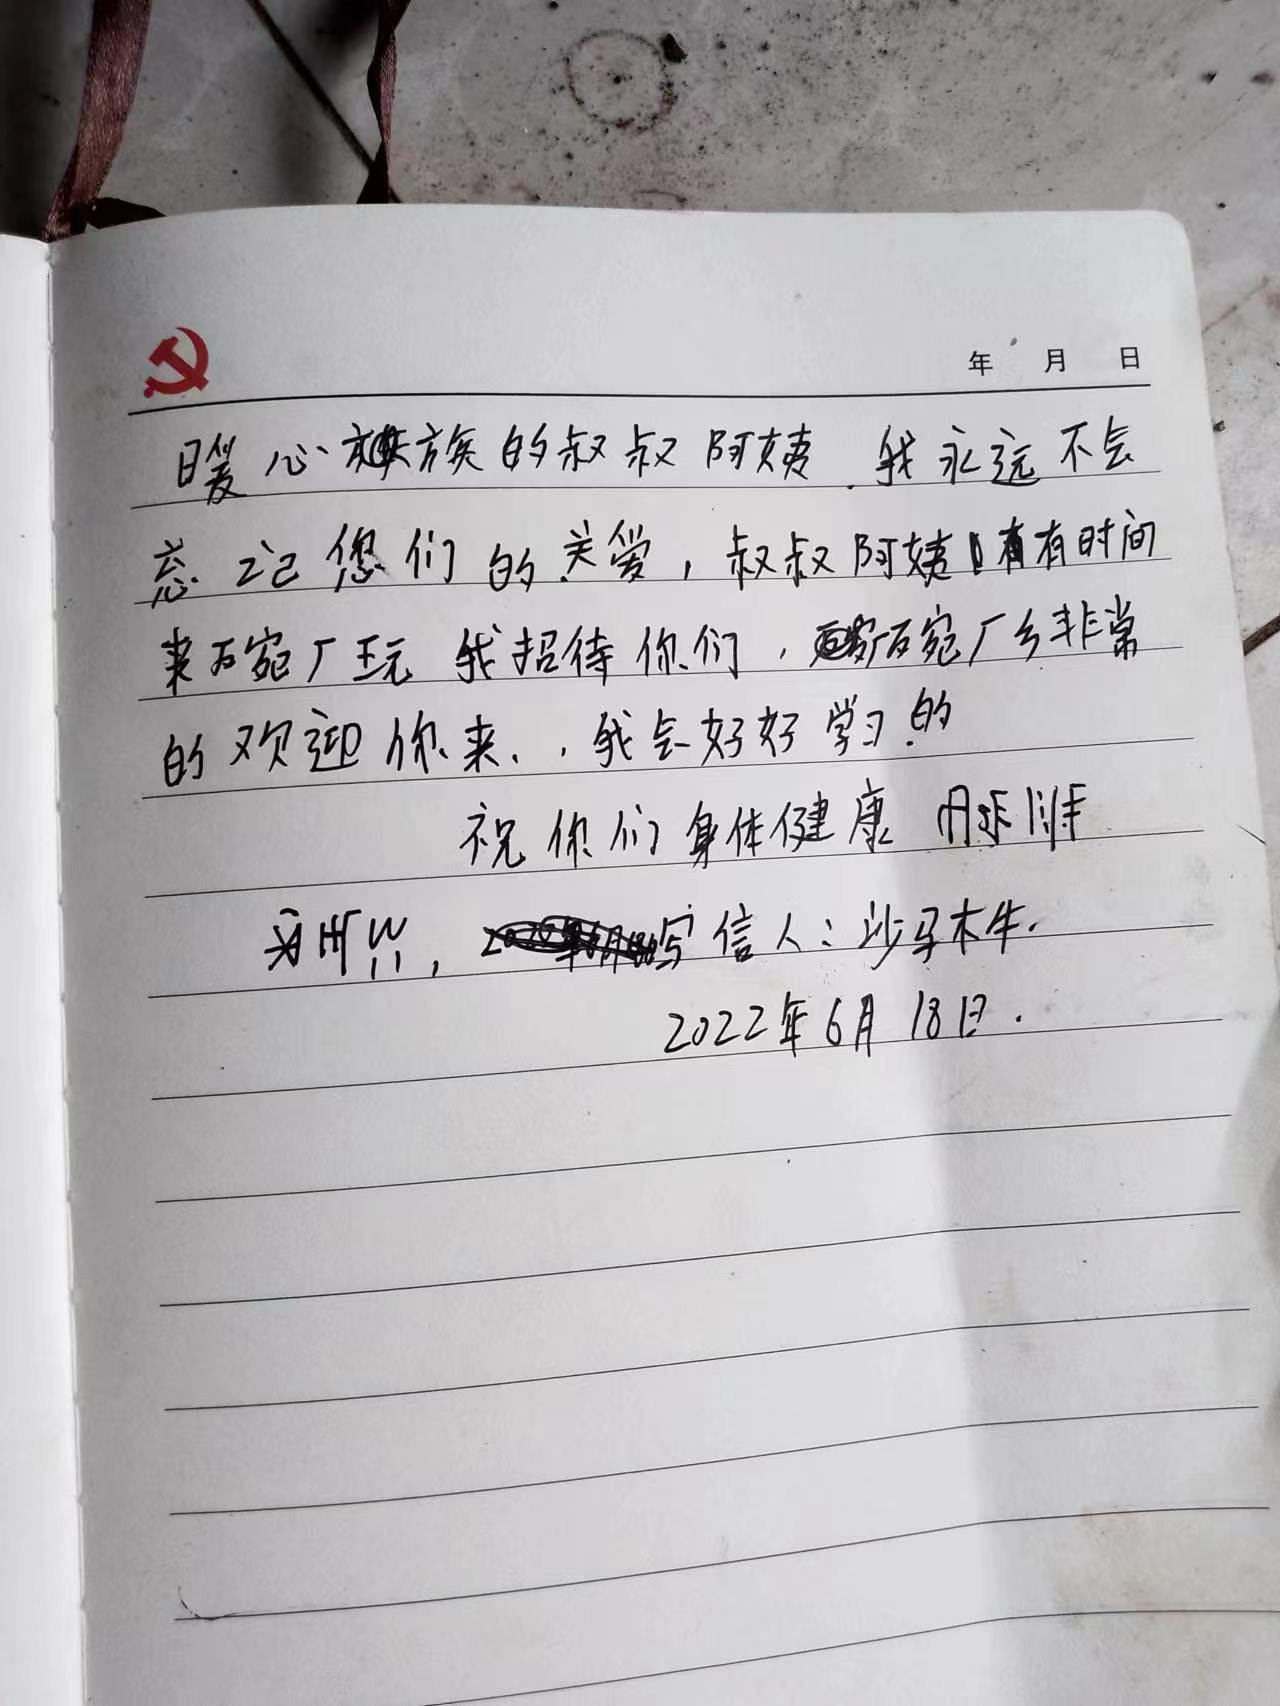 年 月 日
暖心族的叔叔阿姨.我永远不会
忘记您们的关爱,叔叔阿姨有有时间
来瓦宛厂玩 我招待你们,瓦宛厂乡非常
的欢迎你来,我会好好学习的
祝你们身体健康
写信人:沙马木牛.
2022年6月18日.